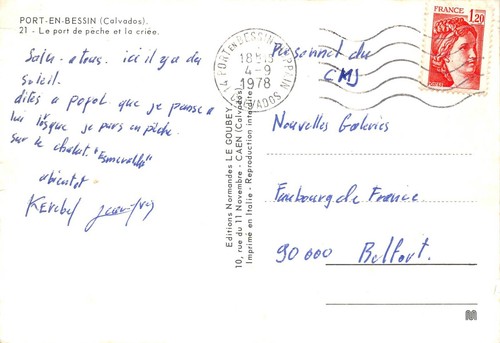 PORT-EN-BESSIN (Calvados).
21 - Le port de pêche et la criée.
Salut a tous. ici il y a du
soleil.
dites a popol que je pense a
lui lorsque je pars en pêche.
sur le chalut. "Esmeralda"
abientot
PORT EN BESSIN HUPPAIN
18H
4-9
1978
14 CALVADOS
FRANCE
1,20
POSTES
Personnel du
CMJ
Nouvelles Galeries
Faubourg de France
90000 Belfort.
Editions Normandes LE GOUBEY
10, rue du 11 Novembre - CAEN (Calvados)
Imprimé en Italie - Reproduction interdite